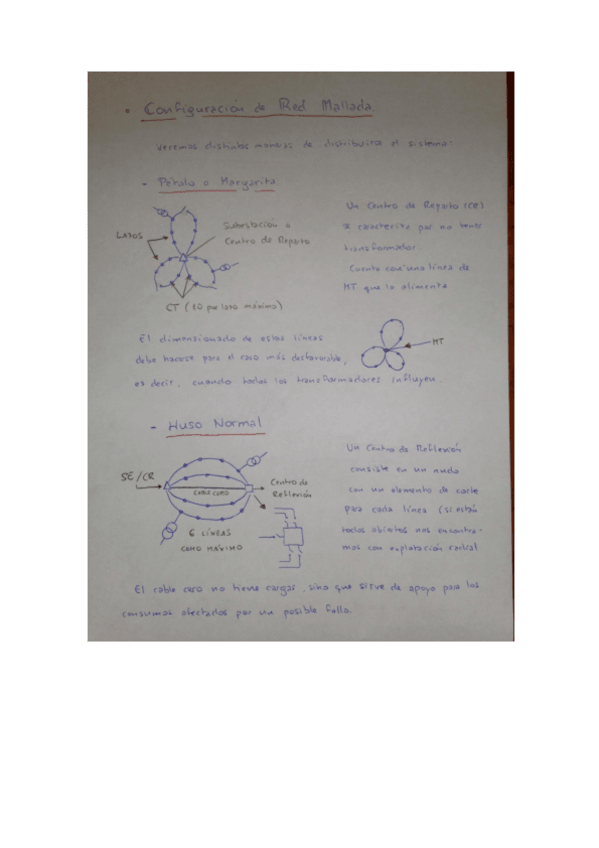 • Configuración de Red Mallada.
Veremos distintas maneras de distribuirse el sistema:
- Pétalo o Margarita
LAZOS
Subestación o
Centro de Reparto
CT (10 por lazo máximo)
Un Centro de Reparto (CR)
se caracteriza por no tener
transformador.
Cuenta con una línea de
MT que lo alimenta
El dimensionado de estas líneas
debe hacerse para el caso más desfavorable,
es decir, cuando todos los transformadores influyen.
MT
- Huso Normal
SE/CR
CABLE CERO
Centro de
Reflexión
6 LÍNEAS
COMO MÁXIMO
Un Centro de Reflexión
consiste en un nudo
con un elemento de corte
para cada línea (si están
todos abiertos nos encontra-
mos con explotación radial
El cable cero no tiene cargas, sino que sirve de apoyo para los
consumos afectados por un posible fallo.